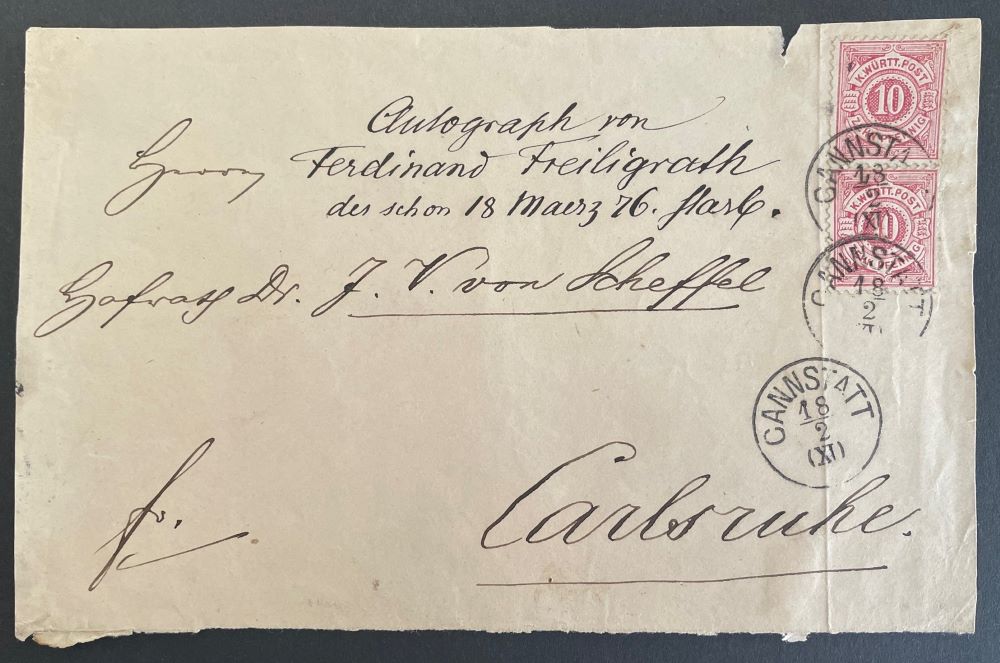 Autograph von
Herrn Ferdinand Freiligrath
der schon 18 Maerz 76. starb.
Hofrath Dr. J. V. von Scheffel
fr. Carlsruhe.
K.WÜRTT.POST
10
ZEHN PFENNIG
K.WÜRTT.POST
10
PFENNIG
CANNSTA
18
2
(XI)
CANNSTATT
18
2
CANNSTATT
18
2
(XI)